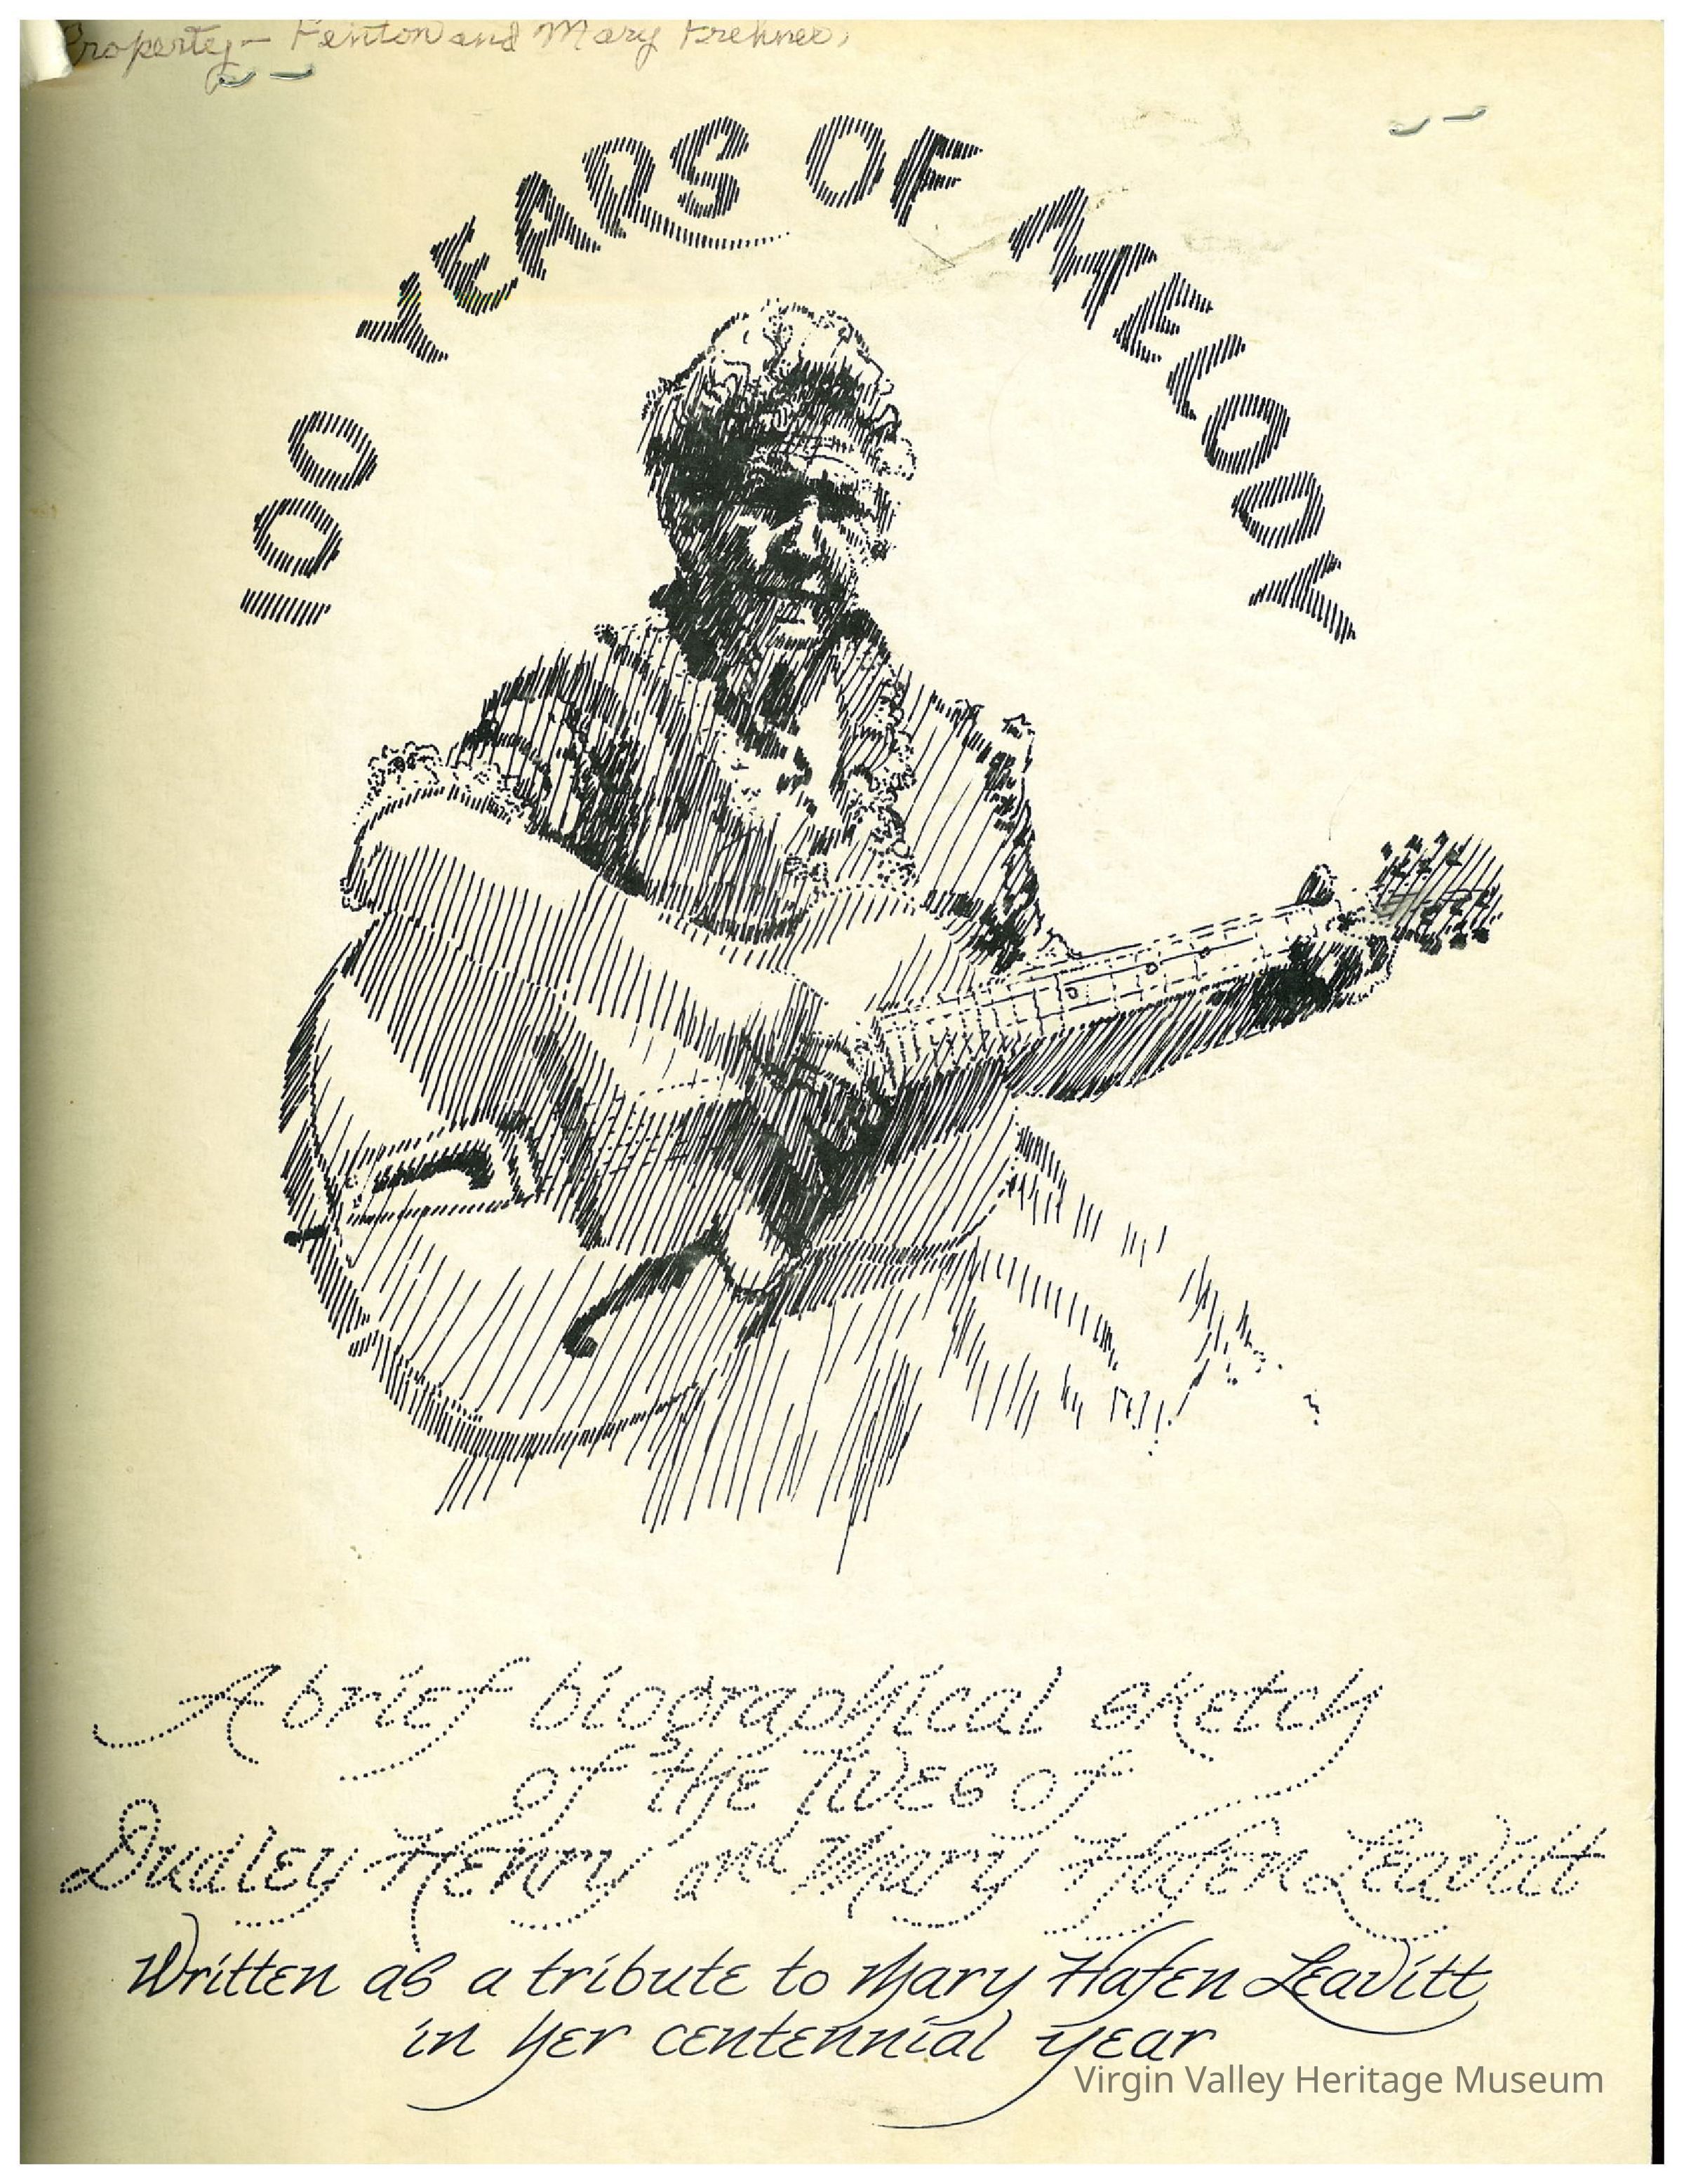 Property - Fenton and Mary Frehner,
100 YEARS OF MELODY
A brief biographical sketch
of the lives of
Dudley Henry and Mary Hafen Leavitt
Written as a tribute to Mary Hafen Leavitt
in her centennial year
Virgin Valley Heritage Museum